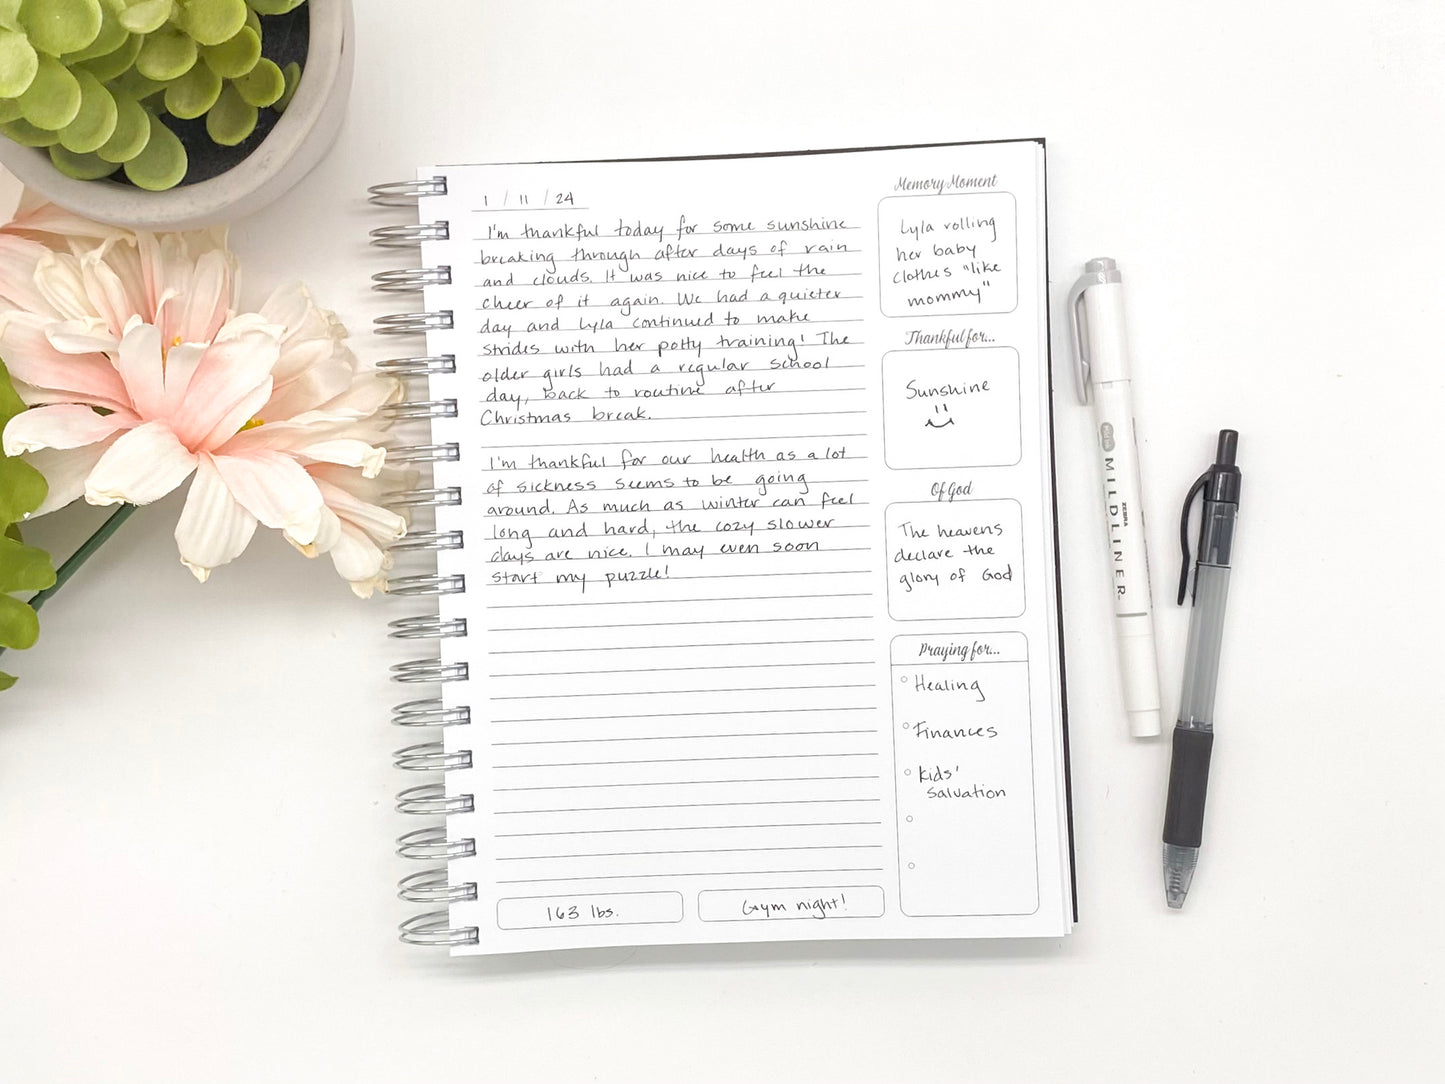 1 / 11 / 24
I'm thankful today for some sunshine
breaking through after days of rain
and clouds. It was nice to feel the
cheer of it again. We had a quieter
day and Lyla continued to make
strides with her potty training! The
older girls had a regular school
day, back to routine after
Christmas break.
I'm thankful for our health as a lot
of sickness seems to be going
around. As much as winter can feel
long and hard, the cozy slower
days are nice. I may even soon
start my puzzle!
163 lbs.
Gym night!
Memory Moment
Lyla rolling
her baby
clothes "like
mommy"
Thankful for...
Sunshine
Of God
The heavens
declare the
glory of God
Praying for...
Healing
Finances
Kids'
Salvation
ZEBRA
MILDLINER